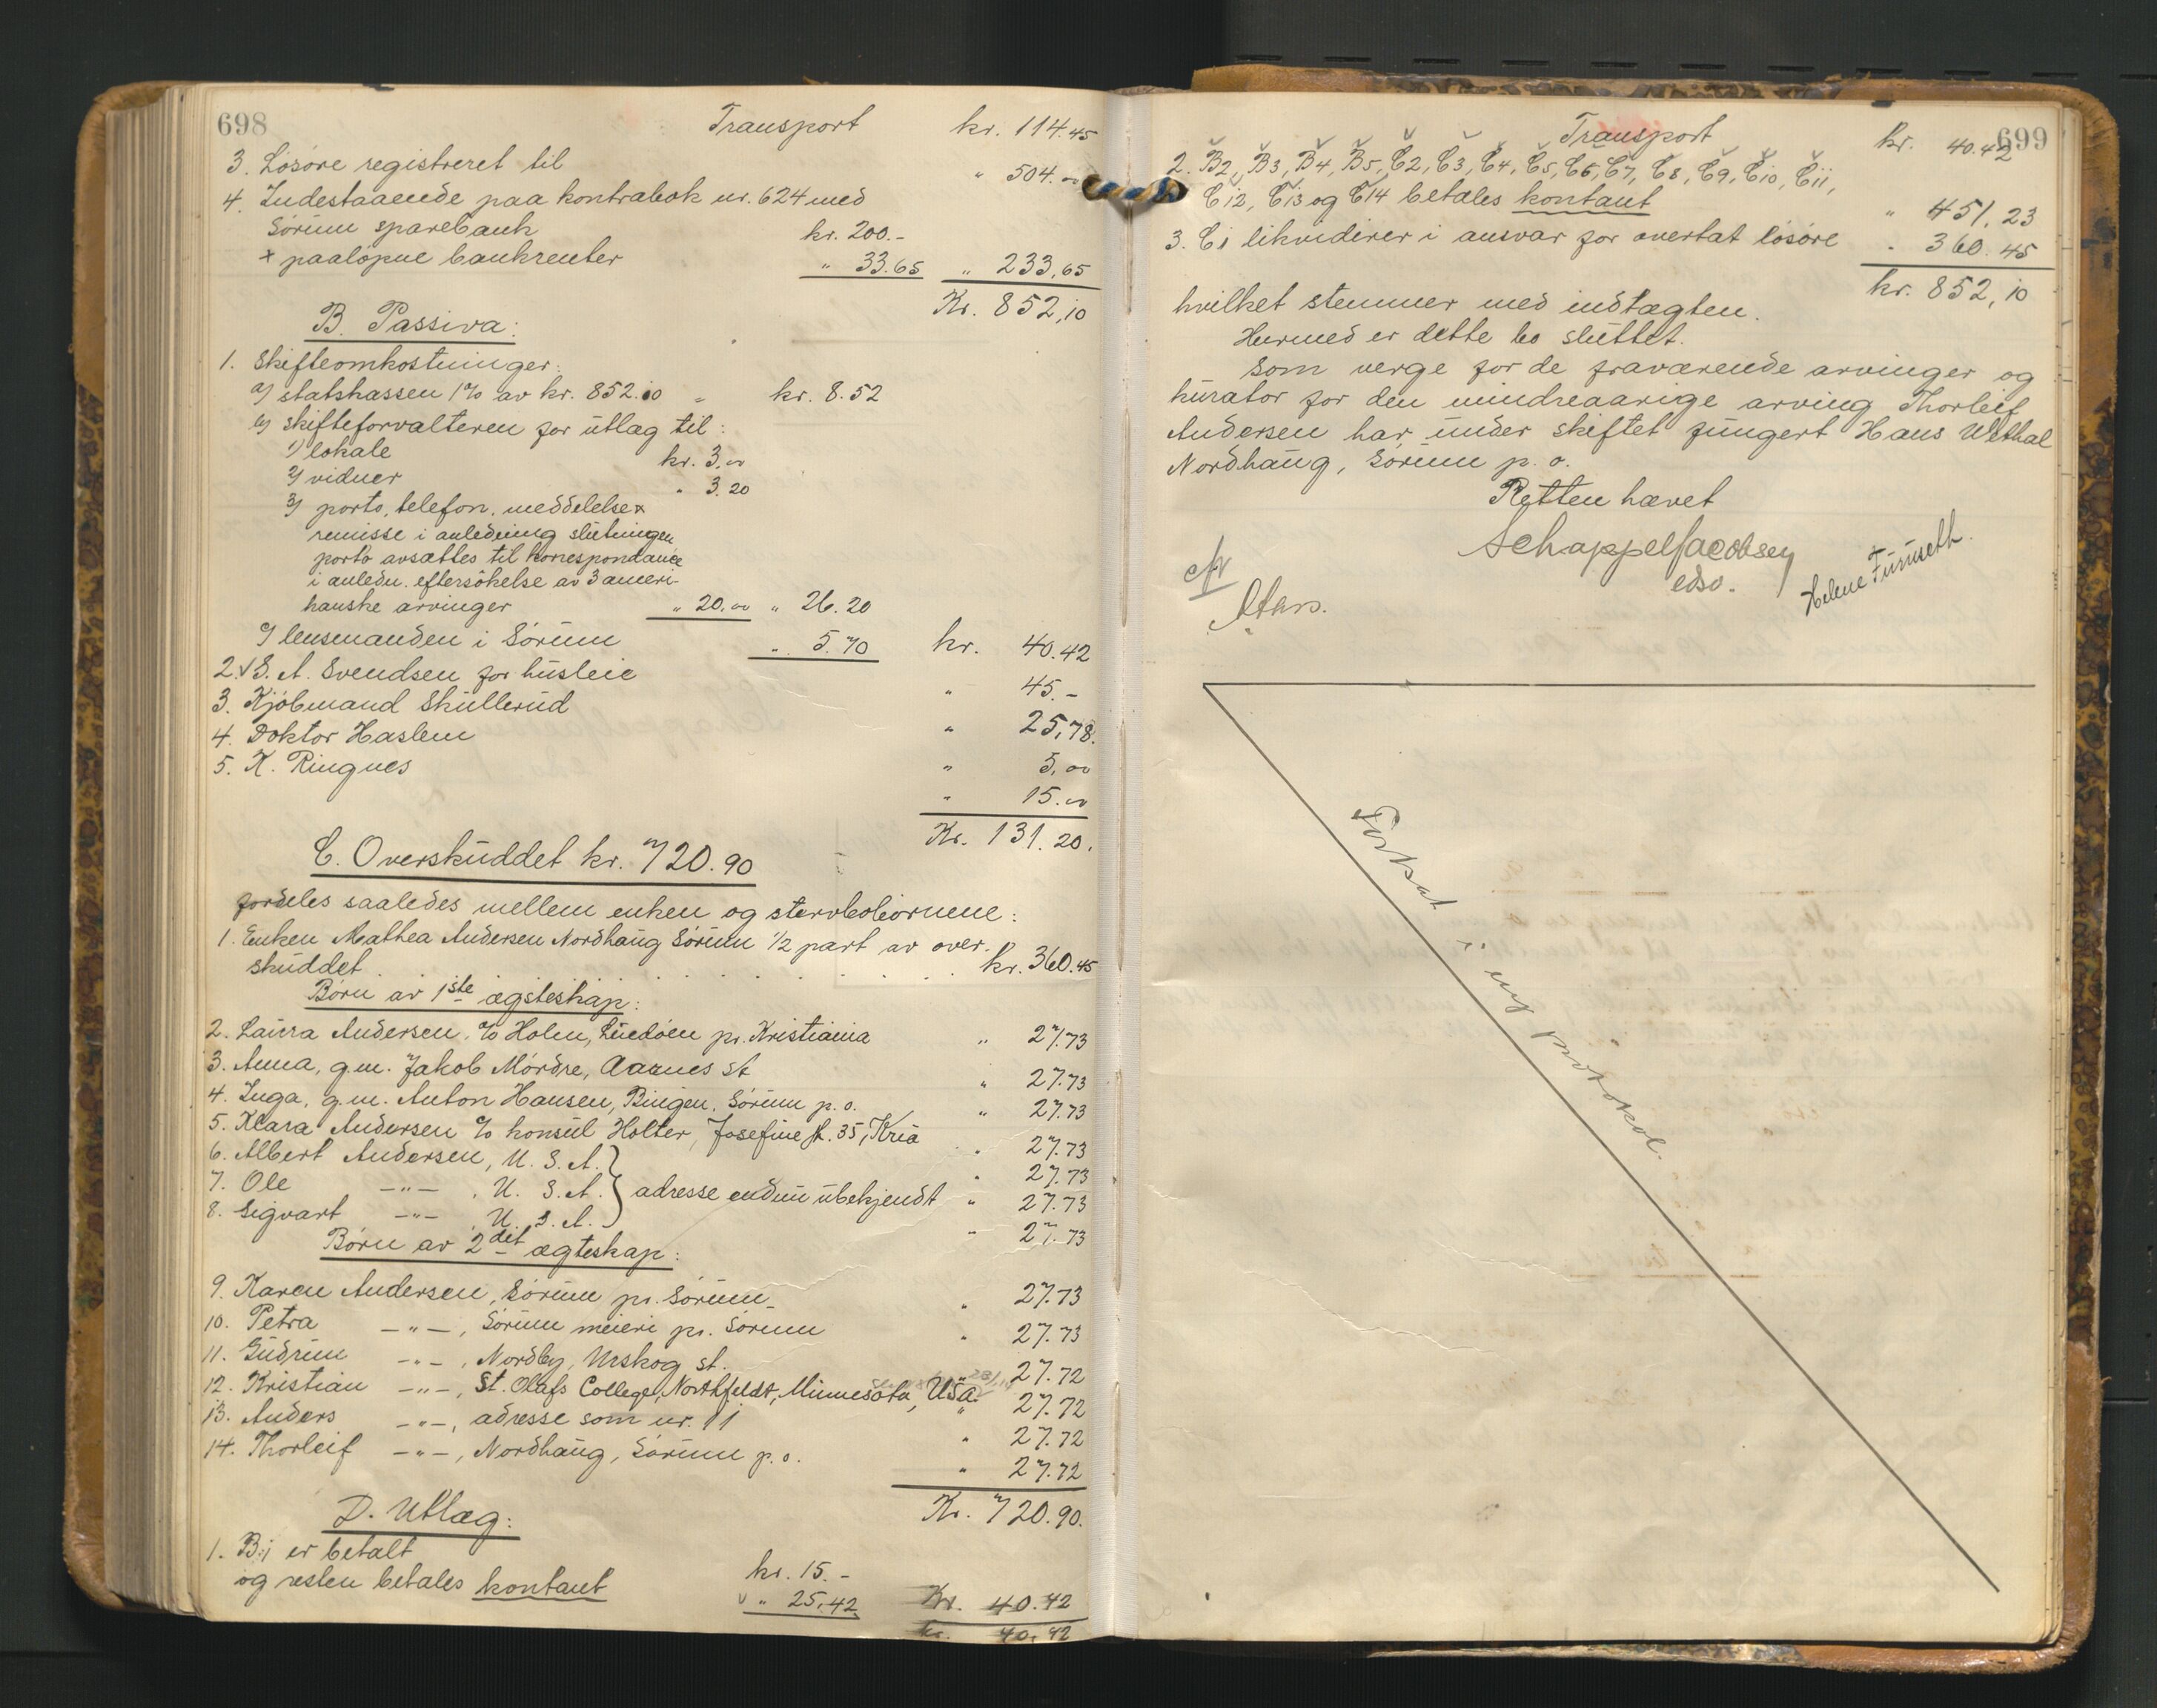 698
Transport kr. 114.45
3. Lösöre registreret til " 504.00
4. Indestaaende paa kontrabok nr. 624 med
Sörum sparebank kr. 200.-
+ paalöpne bankrenter " 33.65 " 233,65
Kr. 852,10
B. Passiva:
1. Skifteomkostninger:
a) statskassen 1% av kr. 852.10 " kr. 8.52
b) skifteforvalteren for utlag til:
1) lokale kr. 3,00
2) vidner " 3.20
3) porto, telefon, meddelelse &
remisse i anledning slutningen
porto avsættes til korrespondance
i anledn. eftersökelse av 3 ameri-
kanske arvinger " 20.00 " 26.20
c) lensmanden i Sörum " 5.70 kr. 40.42
2. S. A. Svendsen for husleie " 45.-
3. Kjöbmand Skullerud " 25,78.
4. Doktor Haslem " 5,00
5. K. Ringnes " 15.00
Kr. 131.20.
C. Overskuddet kr. 720.90
fordeles saaledes mellem enken og stervbobörnene:
1. Enken Mathea Andersen Nordhaug Sörum 1/2 part av over-
skuddet kr. 360.45
Börn av 1ste ægteskap:
2. Laura Andersen, c/o Holm, Lindöen pr. Kristiania " 27.73
3. Anna, g.m. Jakob Mördre, Aarnes st " 27.73
4. Inga, g.m. Anton Hansen, Bingen, Sörum p.o. " 27.73
5. Klara Andersen c/o konsul Holter, Josefine st. 35, Kria " 27.73
6. Albert Andersen, U. S. A. " 27.73
7. Ole -"- , U. S. A. } adresse endnu ubekjendt " 27.73
8. Sigvart -"- , U. S. A. " 27.73
Börn av 2det ægteskap:
9. Karen Andersen, Sörum pr. Sörum " 27.73
10. Petra -"- , Sörum meieri pr. Sörum " 27.73
11. Gudrun -"- , Nordby, Urskog st. " 27.72
12. Kristian -"- , St. Olafs College, Northfeldt, Minnesota, USA. " 27.72
13. Anders -"- , adresse som nr. 11 " 27.72
14. Thorleif -"- , Nordhaug, Sörum p.o. " 27.72
Kr. 720.90.
D. Utlæg:
1. B.1 er betalt kr. 15.-
og resten betales kontant " 25.42 Kr. 40.42
kr. 40.42
699
Transport kr. 40.42
2. B2, B3, B4, B5, C2, C3, C4, C5, C6, C7, C8, C9, C10, C11,
C12, C13 og C14 betales kontant " 451.23
3. C1 likviderer i ansvar for overtat lösöre " 360.45
kr. 852,10
hvilket stemmer med indtægten.
Hermed er dette bo sluttet.
Som verge for de fraværende arvinger og
kurator for den mindreaarige arving Thorleif
Andersen har under skiftet fungert Hans Wethal
Nordhaug, Sörum p.o.
Retten hævet
Schappel Jacobsen
edsv.
Helene Furuseth
Fortsat i ny protokol.